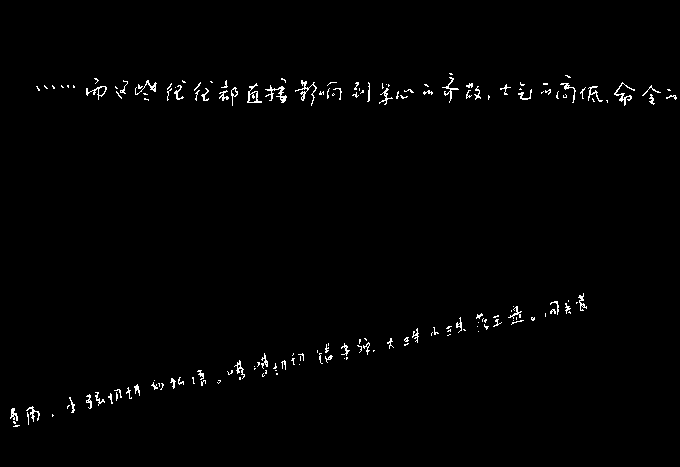 ……而这些往往都直接影响到军心的齐散,士气的高低,命令的
急雨,小弦切切如私语。嘈嘈切切错杂弹,大珠小珠落玉盘。间关莺